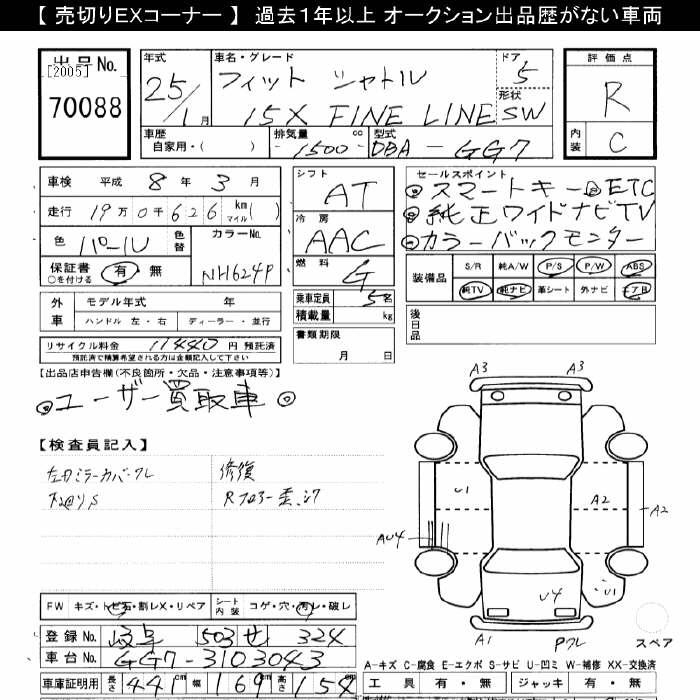 【 売切りEXコーナー 】 過去1年以上 オークション出品歴がない車両
出品No.
[2005]
70088
年式
25/1月
車名・グレード
フィット シャトル
15X FINE LINE
ドア
5
形状
SW
評価点
R
内装
C
車歴
自家用・( )
排気量
1500 cc
型式
DBA - GG7
車検 平成 8年 3月
走行 19万0千626 km マイル( )
色 パール 色替
カラーNo.
NH624P
保証書 有・無
○を付ける
シフト
AT
冷房
AAC
燃料
G
乗車定員 5名
積載量 kg
書類期限
月 日
セールスポイント
◎スマートキー ETC
◎純正ワイドナビTV
◎カラーバックモンター
装備品
S/R 純A/W P/S P/W ABS
純TV 純ナビ 革シート 外ナビ エアB
後日品
外車
モデル年式 年
ハンドル 左・右 ディーラー・並行
リサイクル料金 11440 円 預託済
預託済で精算希望される方は金額記入して下さい
【出品店申告欄(不良箇所・欠品・注意事項等)】
◎ユーザー買取車◎
【検査員記入】
左ドミラーカバークレ
修復
A3 A3
U1 A2 A2
AU4
U4 U1
A1 Pクレ
スペア
FW キズ・トビ石・割レX・リペア
シート内装 コゲ・穴・汚レ・破レ
登録No. 岐阜 503 せ 324
車台No. GG7-3103043
車庫証明用 長さ 44 cm 幅 169 cm 高さ 154 cm
A-キズ C-腐食 E-エクボ S-サビ U-凹ミ W-補修 XX-交換済
工具 有・無 ジャッキ 有・無